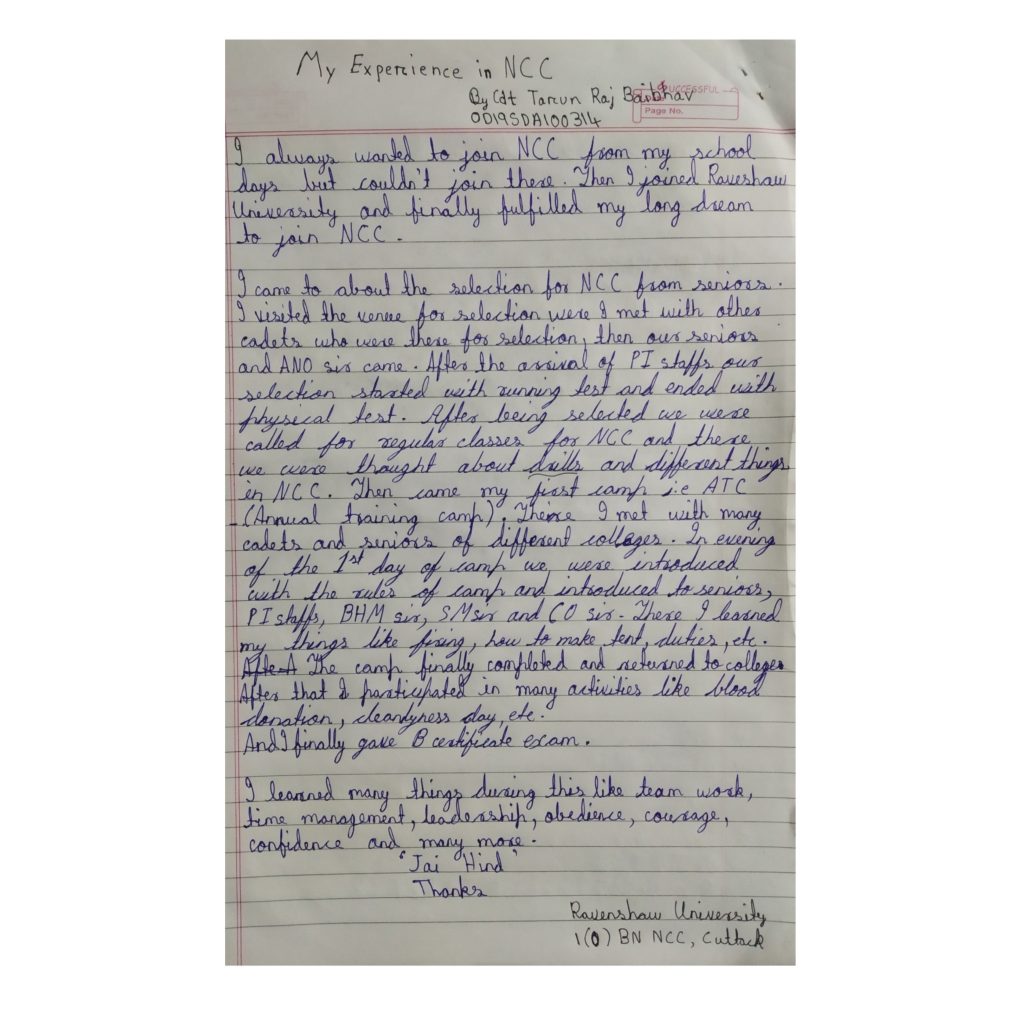 My Experience in NCC
By Cdt Tarun Raj Baibhav
SUCCESSFUL
Page No.
OD19SDA100314
I always wanted to join NCC from my school
days but couldn't join there. Then I joined Raveshaw
University and finally fulfilled my long dream
to join NCC.
I came to about the selection for NCC from seniors.
I visited the venue for selection were I met with other
cadets who were there for selection, then our seniors
and ANO sir came. After the arrival of PI staffs our
selection started with running test and ended with
physical test. After being selected we were
called for regular classes for NCC and there
we were thought about drills and different things
in NCC. Then came my first camp i.e ATC
(Annual training camp). There I met with many
cadets and seniors of different colleges. In evening
of the 1st day of camp we were introduced
with the rules of camp and introduced to seniors,
PI staffs, BHM sir, SM sir and CO sir. There I learned
my things like firing, how to make tent, duties, etc.
After A The camp finally completed and returned to college.
After that I participated in many activities like blood
donation, cleandyness day, etc.
And I finally gave B certificate exam.
I learned many things during this like team work,
time management, leadership, obedience, courage,
confidence and many more.
'Jai Hind'
Thanks
Ravenshaw University
1(O) BN NCC, Cuttack